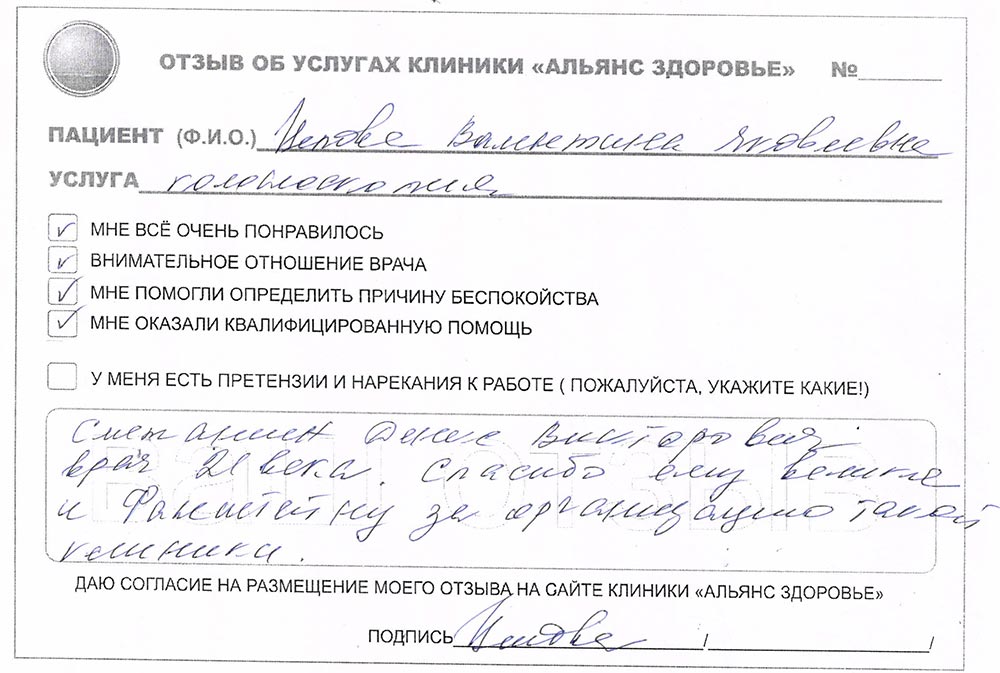 ОТЗЫВ ОБ УСЛУГАХ КЛИНИКИ «АЛЬЯНС ЗДОРОВЬЕ» №
ПАЦИЕНТ (Ф.И.О.) Валентина Яковлевна
УСЛУГА колоноскопия
МНЕ ВСЁ ОЧЕНЬ ПОНРАВИЛОСЬ
ВНИМАТЕЛЬНОЕ ОТНОШЕНИЕ ВРАЧА
МНЕ ПОМОГЛИ ОПРЕДЕЛИТЬ ПРИЧИНУ БЕСПОКОЙСТВА
МНЕ ОКАЗАЛИ КВАЛИФИЦИРОВАННУЮ ПОМОЩЬ
У МЕНЯ ЕСТЬ ПРЕТЕНЗИИ И НАРЕКАНИЯ К РАБОТЕ ( ПОЖАЛУЙСТА, УКАЖИТЕ КАКИЕ!)
Сметанин Денис Викторович
врач 21 века. Спасибо ему
и за организацию такой
клиники.
ДАЮ СОГЛАСИЕ НА РАЗМЕЩЕНИЕ МОЕГО ОТЗЫВА НА САЙТЕ КЛИНИКИ «АЛЬЯНС ЗДОРОВЬЕ»
ПОДПИСЬ / /